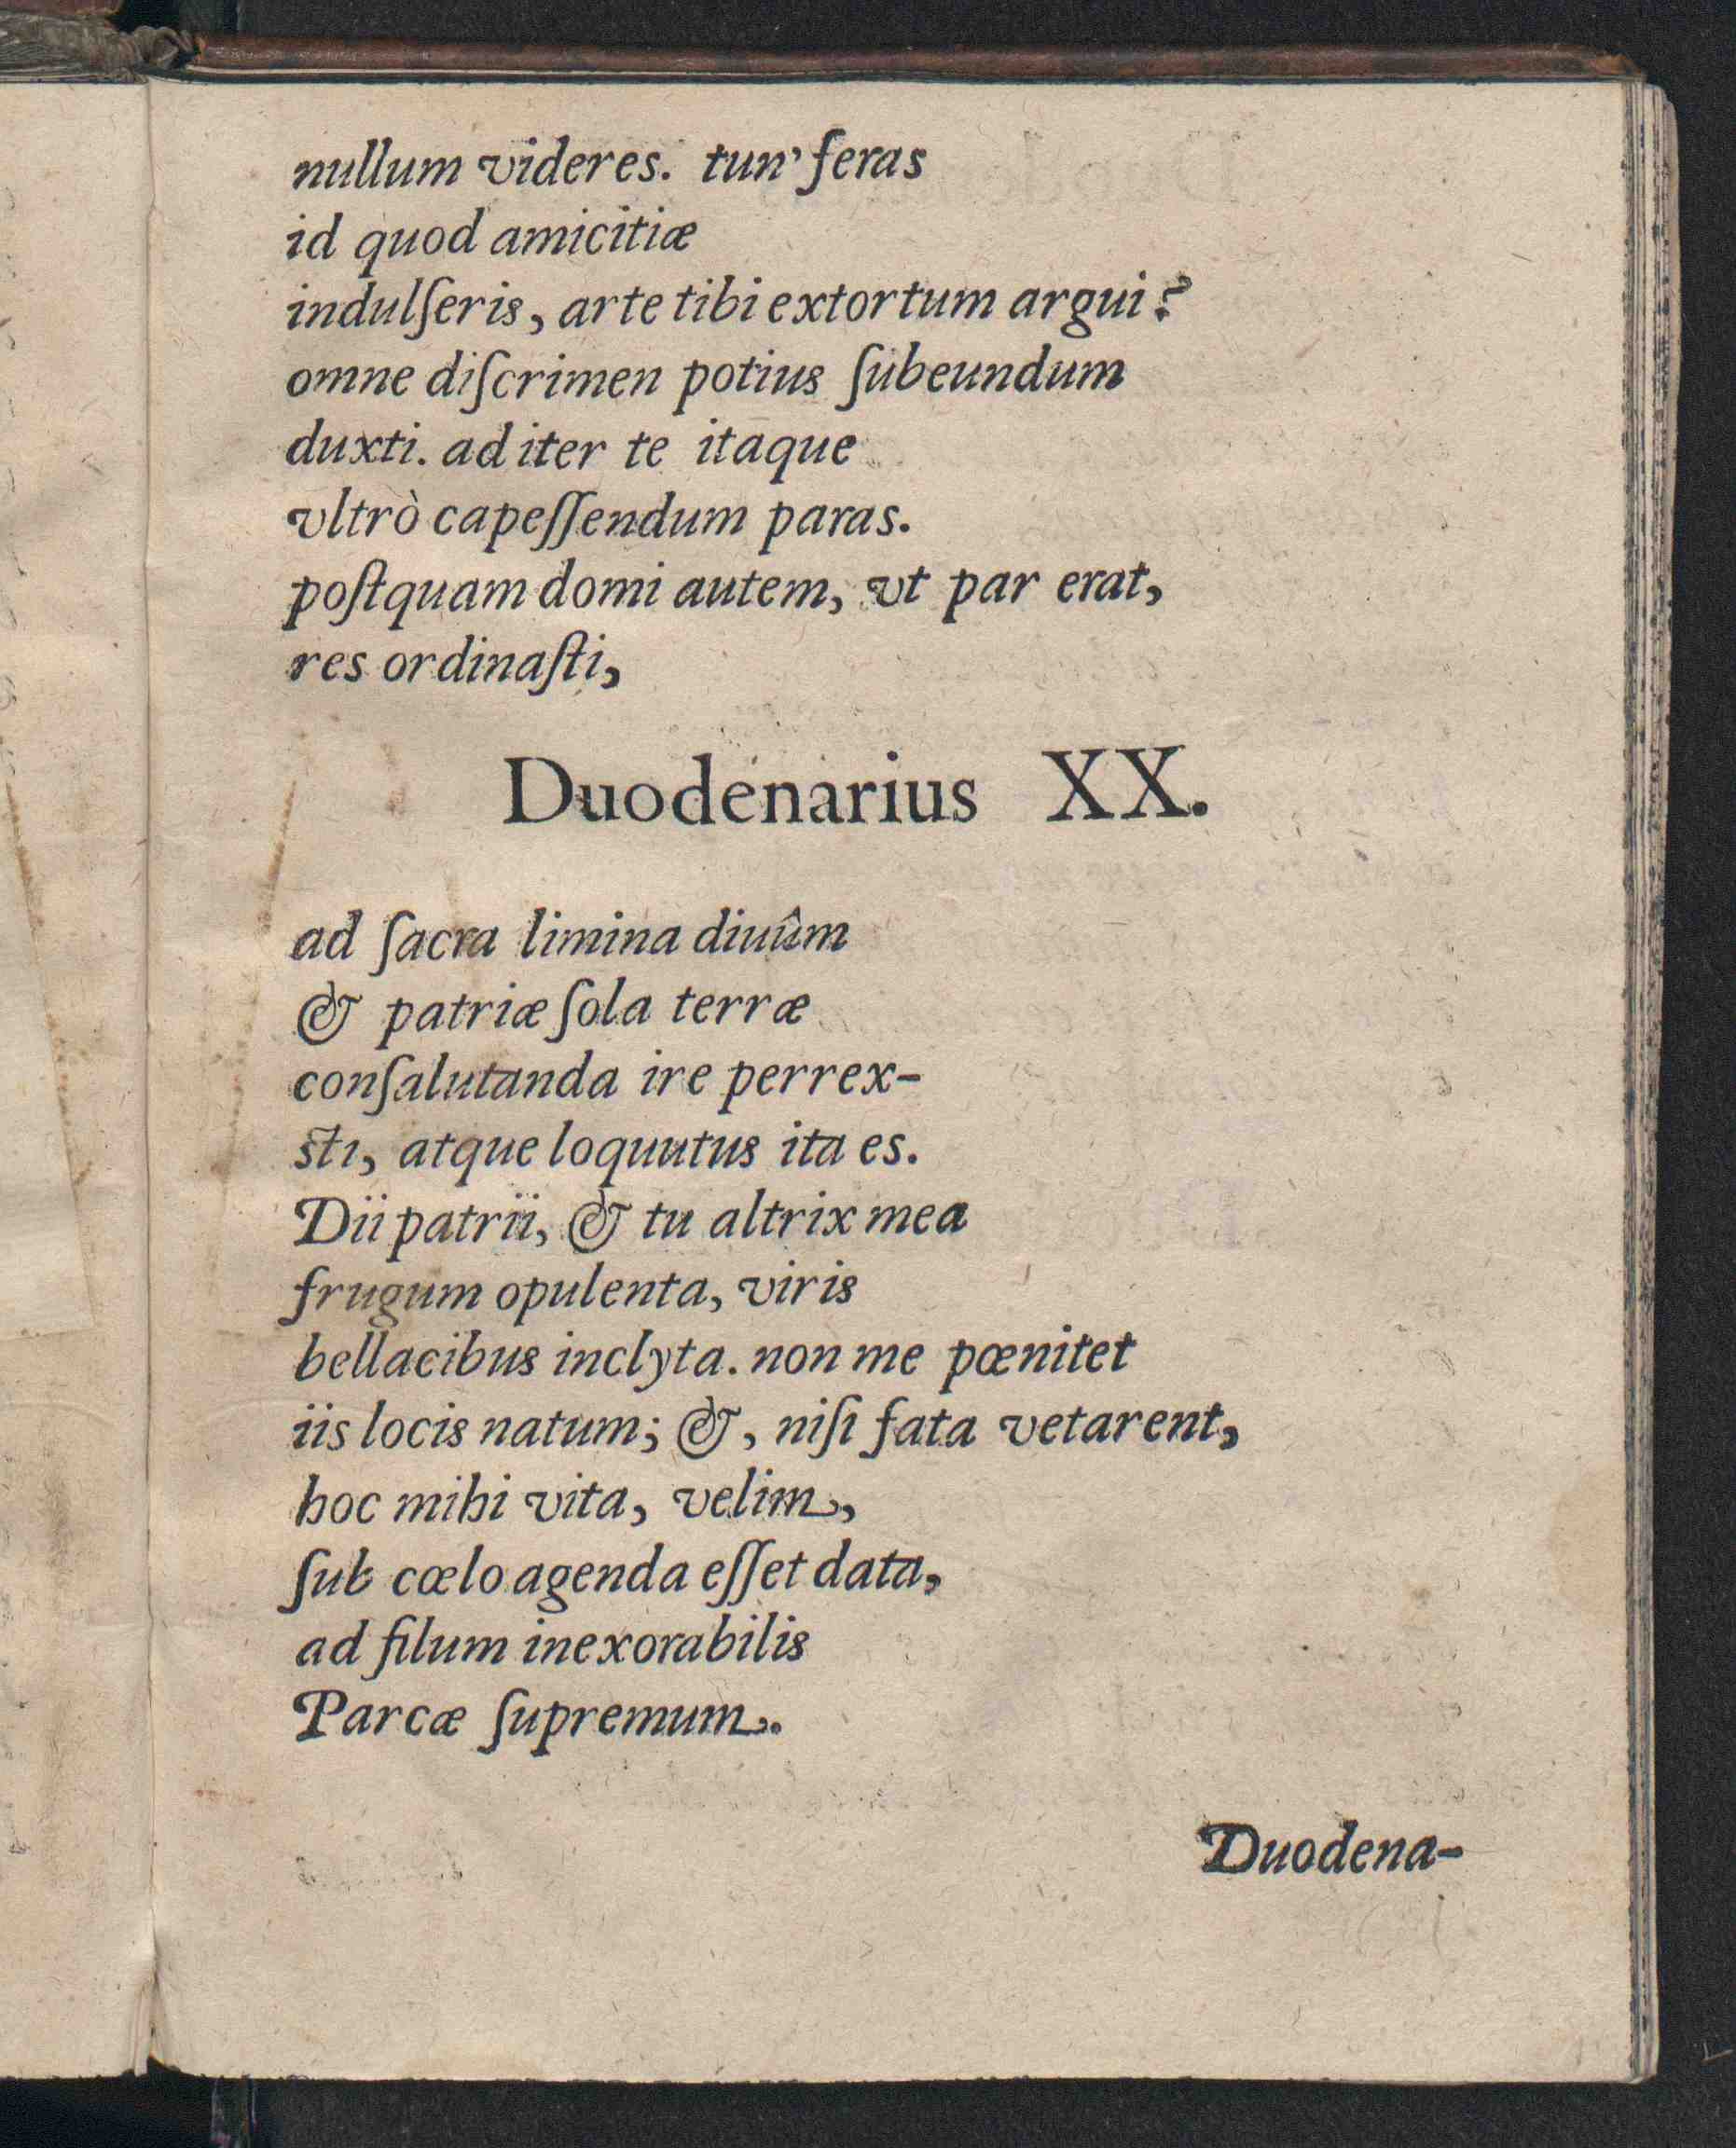 nullum videres. tun' feras
id quod amicitiæ
indulſeris, arte tibi extortum argui?
omne diſcrimen potius ſubeundum
duxti. ad iter te itaque
vltrò capeſſendum paras.
poſtquam domi autem, vt par erat,
res ordinaſti,
Duodenarius XX.
ad ſacra limina diuûm
& patriæ ſola terræ
conſalutanda ire perrex-
sti, atque loquutus ita es.
Dii patrii, & tu altrix mea
frugum opulenta, viris
bellacibus inclyta. non me pœnitet
iis locis natum; &, niſi fata vetarent,
hoc mihi vita, velim,
ſub cœlo agenda eſſet data,
ad filum inexorabilis
Parcæ ſupremum.
Duodena-